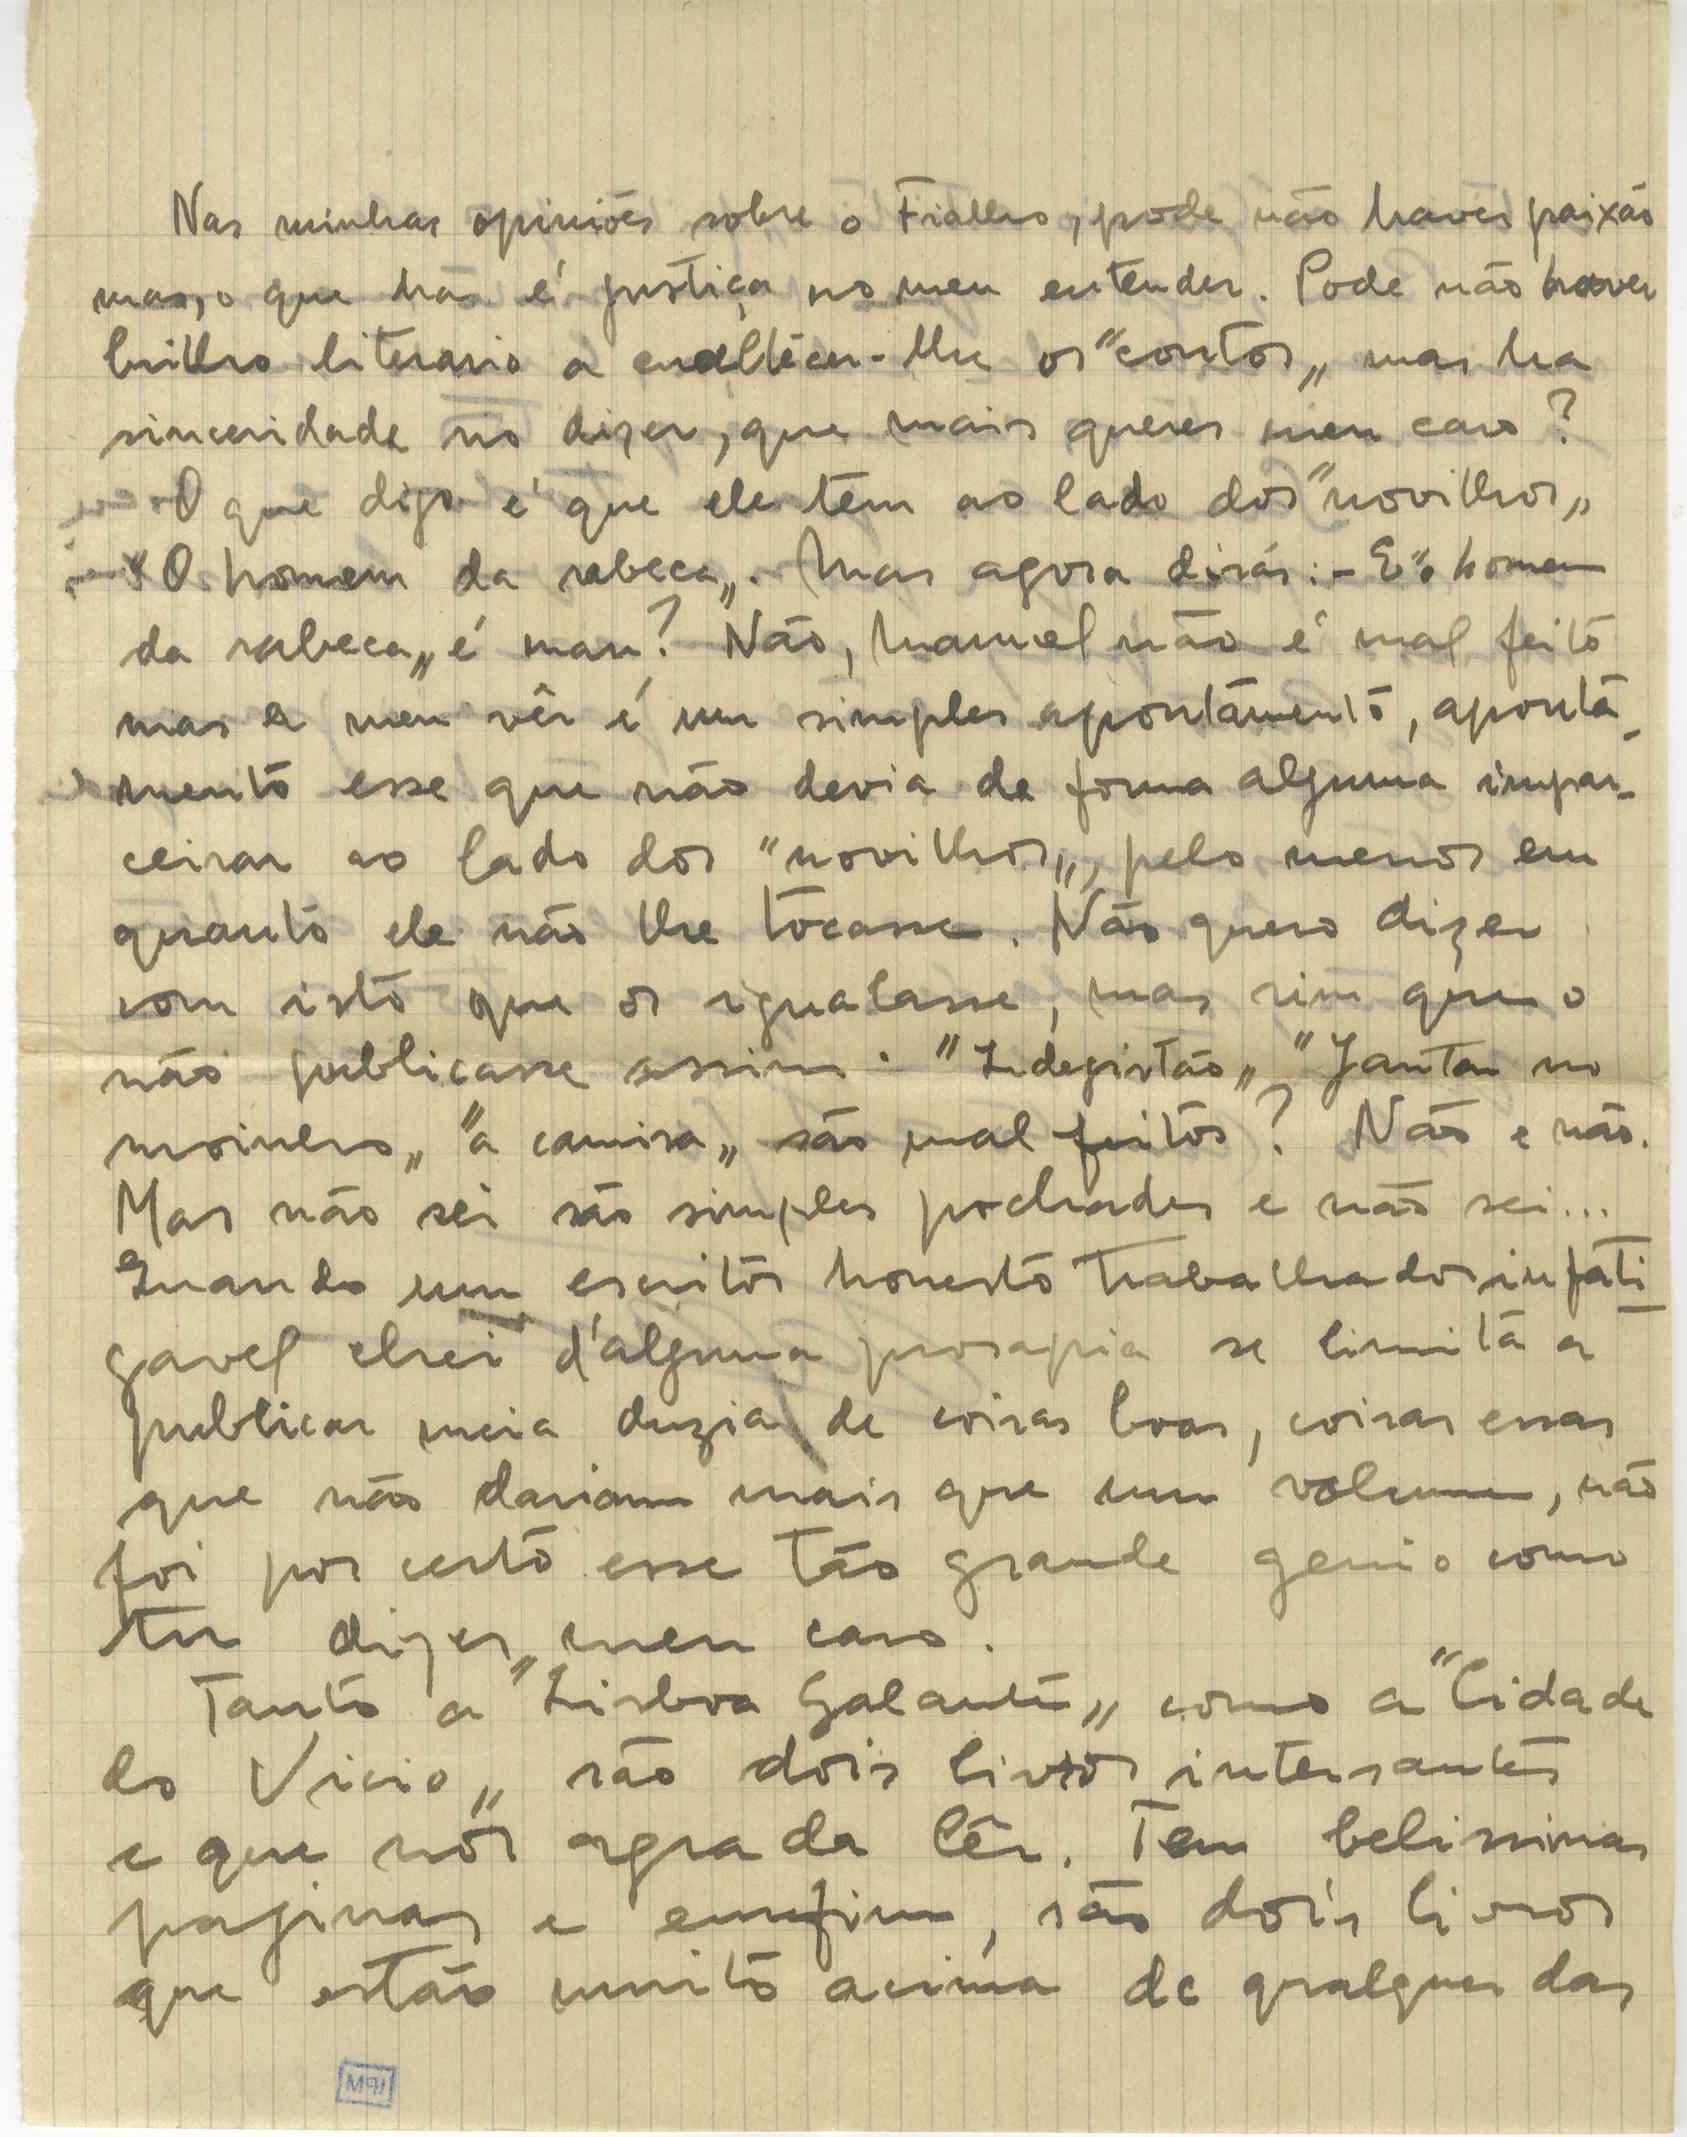 Nas minhas opiniões sobre o Fialho, pode não haver paixão
mas, o que há é justiça no meu entender. Pode não haver
brilho literario a enaltecer-lhe os "contos„ mas ha
sinceridade no dizer, que mais queres meu caro?
O que digo é que ele tem ao lado dos "novilhos„
"O homem da rabeca„. Mas agora dirás: - E "o homem
da rabeca„ é mau? Não, Manuel não é mal feito
mas a meu vêr é um simples apontamento, aponta-
mento esse que não devia de forma alguma empar-
ceirar ao lado dos "novilhos„, pelo menos em
quanto ele não lhe tocasse. Não quero dizer
com isto que os igualasse, mas sim que o
não publicasse assim. "Indegistão„ "Jantar no
moinho„ "a camisa„ são mal feitos? Não e não.
Mas não sei são simples pochades e não sei...
Quando um escritor honesto trabalhador infati
gavel chei d'alguma prosapia se limita a
publicar meia duzia de coisas boas, coisas essas
que não dariam mais que um volume, não
foi por certo esse tão grande genio como
tu dizes, meu caro.
Tanto a "Lisboa Galante„ como a "Cidade
do Vicio„ são dois livros intersantes
e que nos agrada lêr. Tem belissimas
paginas e emfim, são dois livros
que estão muito acima de qualquer das
IPM